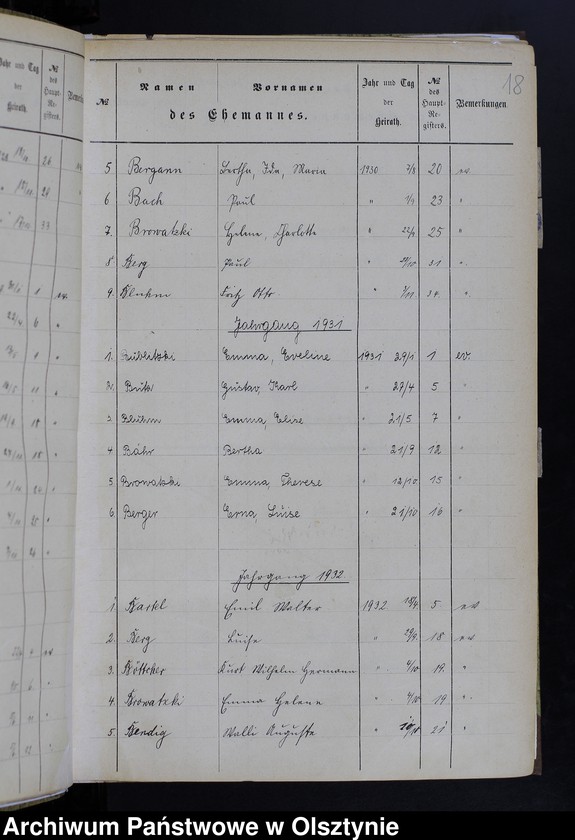 18
№ Namen Vornamen Jahr und Tag der Heirath. № des Haupt-Registers. Bemerkungen
des Ehemannes.
5 Bergann Bertha, Ida, Maria 1930 2/8 20 ev
6 Bach Paul " 23 "
7. Browatzki Helene, Charlotte " 25 "
8 Berg Paul " 31 "
9. Bluhm Fritz Otto " 7/11 34. "
Jahrgang 1931
1. Emma, Eveline 1931 29/1 1 ev.
2. Gustav, Karl " 27/4 5 "
3. Bluhm Emma, Elise " 21/5 7 "
4 Bähr Bertha " 21/9 12 "
5 Browatzki Emma, Therese " 12/10 15 "
6 Berger Erna, Luise " 21/10 16 "
Jahrgang 1932
1. Bartel Emil Walter 1932 5. ev
2. Berg Luise " 18 ev
3. Böttcher Kurt Wilhelm Hermann " 4/10 19. "
4. Browatzki Emma Helene " 4/10 19 "
5. Bendig Walli Auguste " 21 "
Archiwum Państwowe w Olsztynie